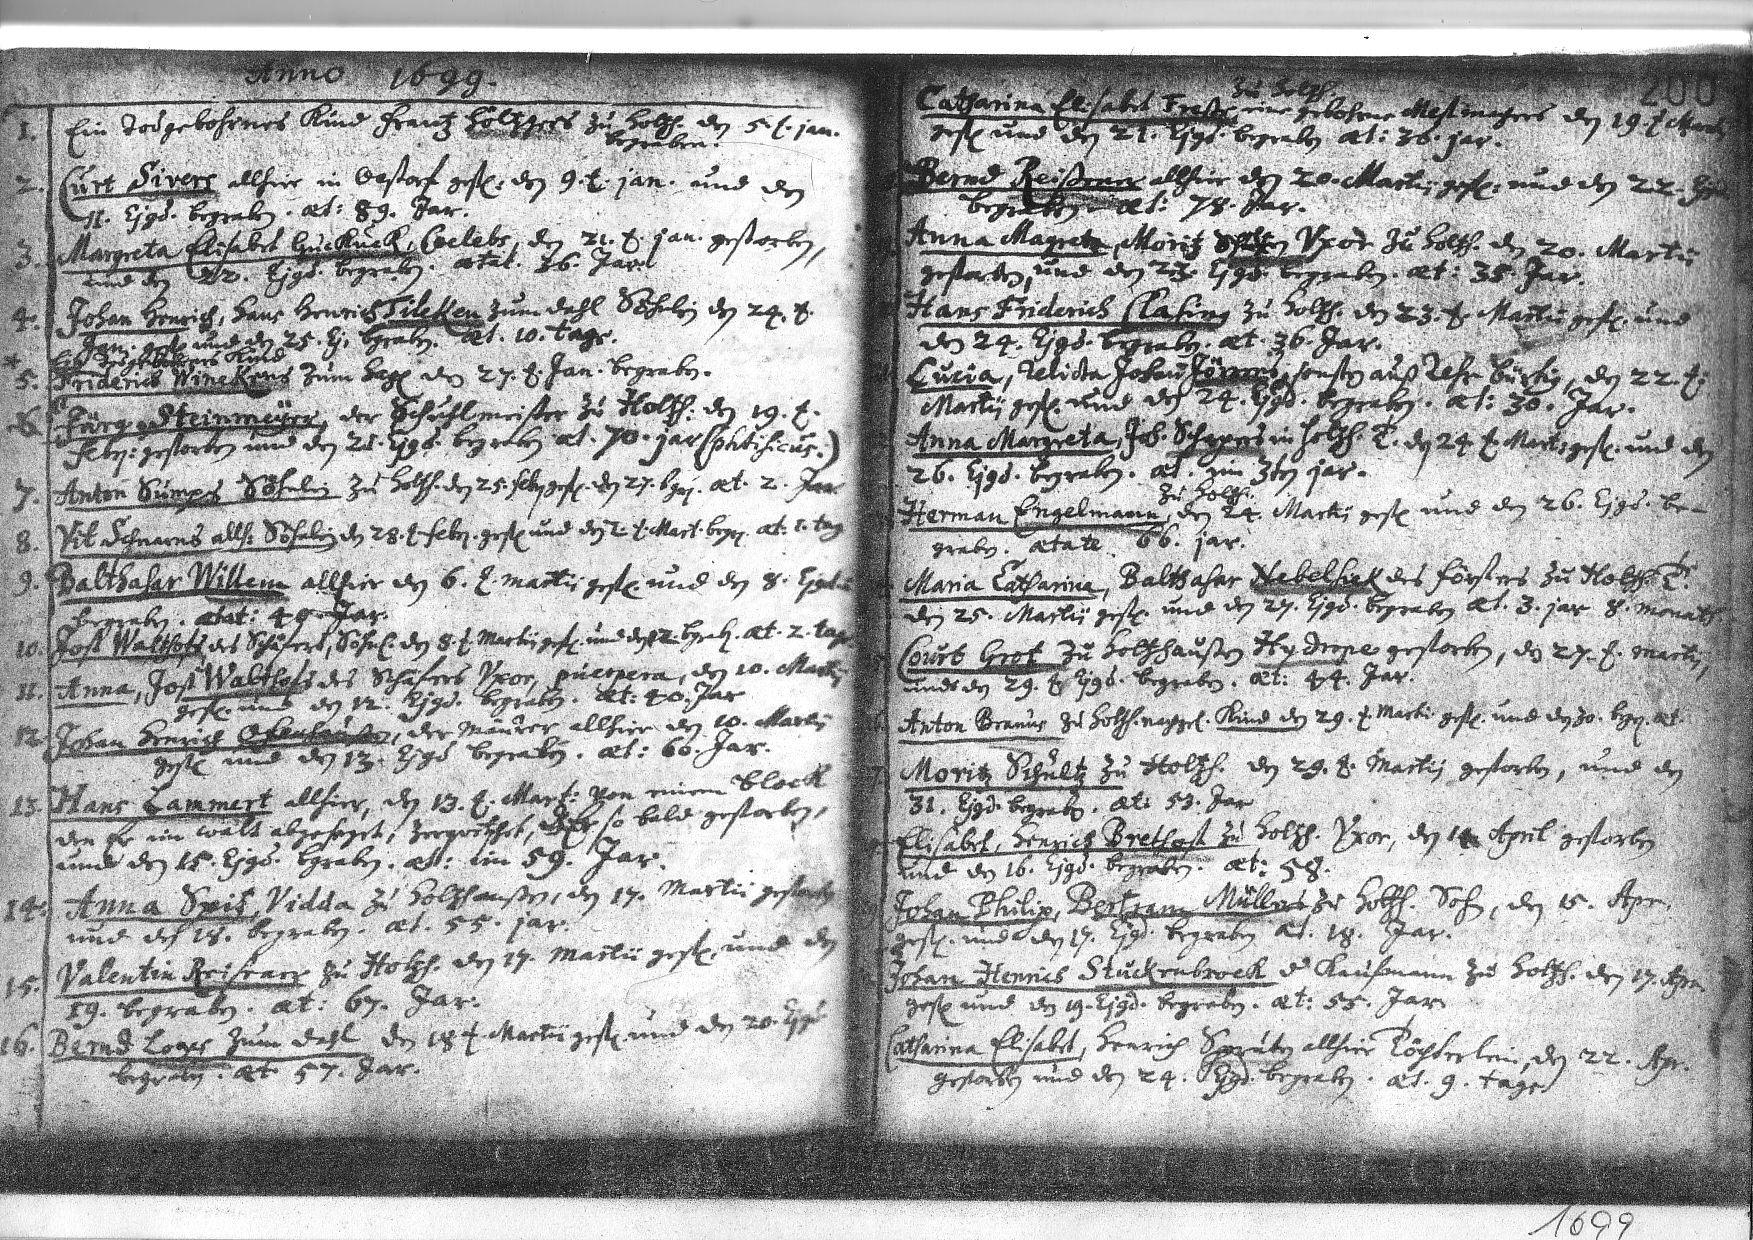 Anno 1699.
1. Ein Todgebohrnes Kind Frantz Höltzgers zu Holtzh. den 5. t. jan.
begraben.
2. Curt Sivers allhier in Oestorf gest: den 9. t. jan. und den
11. Ejgd. begraben. æt: 89. Jar.
3. Margreta Elisabet Guckuck, Coelebs, den 21. t. jan. gestorben,
und den 22. Ejgd. begraben. ætat. 36. Jar.
4. Johan Henrich, Hans Henrich Tileken zum dahl Söhnlein den 24. t.
Jan. gest und den 25. Ej. begraben. æt. 10. tage.
Ein Todgebohrnes Kind
5. Friderich Winekens zum den 27. t. Jan. begraben.
6. Jürg Steinmeyer, der Schuhlmeister zu Holtzh. den 19. t.
Febr: gestorben und den 21. Ejgd. begraben æt. 70. jar (phthisicus.)
7. Anton Sumps Söhnlein zu Holtzh. den 25. feb gest. den 27. begr. æt. 2. Jar
8. Vit allh: Söhnlein den 28. t. feb. gest und den 2. t. Mart. begr æt: 1. tag
9. Balthasar Willem allhier den 6. t. martii gest. und den 8. Ejgd.
begraben. ætat: 40 Jar.
10. Jost Walthofs des Schäfers, Söhnl. den 8. t. Martii gest. und den 12 begrab. æt. 2. tage
11. Anna, Jost Walthofs des Schäfers Uxor, puerpera, den 10. Martii
gest. und den 12. Ejgd. begraben. æt: 40. Jar
12. Johan Henrich , der Mäurer allhier den 10. Martii
gest und den 13. Ejgd begraben. æt: 60. Jar.
13. Hans Lammert allhier, den 13. t. Mart: von einem block
den Er im walt abgesaget, zerqvetschet, so bald gestorben,
und den 15. Ejgd. begraben. æt: im 59. Jar.
14. Anna Spis, Vidda zu Holtzhaussen, den 17. Martii gestorben
und den 18. begraben. æt. 55. jar.
15. Valentin Reisner zu Holtzh. den 17. Martii gest. und den
19. begraben. æt: 67. Jar.
16. Bernd Loges zum dahl den 18 t. Martii gest. und den 20. Ejgd
begraben. æt. 57. Jar.
200
zu Holtzh.
Catharina Elisabet eine gebohrne Mestmachers den 19. t. Martii
gest und den 21. Ejgd. begraben æt: 36. jar.
Bernd Reisner allhier den 20. Martii gest: und den 22. Ejgd.
begraben æt: 78. Jar.
Anna Magreta, Moritz Uxor zu Holtzh. den 20. Martii
gestorben, und den 23. Ejgd. begraben. æt: 35 Jar.
Hans Friderich Clasing zu Holtzh. den 23. t. Martii gest. und
den 24. Ejgd. begraben. æt. 36. Jar.
Lucia, Relicta Johan , den 22. t.
Martii gest. und den 24. Ejgd. begraben. æt: 30. Jar.
Anna Margreta, Joh. Schapers in Holtzh. T. den 24 t. Martii gest. und den
26. Ejgd. begraben. æt. im 3ten jar.
zu Holtzh.
Herman Engelmann den 24. Martii gest und den 26. Ejgd. be-
graben. ætate 66. jar.
Maria Catharina, Balthasar Nebelsiek des försters zu Holtzh. T.
den 25. Martii gest. und den 27. Ejgd. begraben æt. 3. jar 8. monath
Court Grot zu Holtzhaussen Hydrope gestorben, den 27. t. martii,
und den 29. t Ejgd. begraben. æt: 44. Jar.
Anton Brauns zu Holtzh. Kind den 29. t. Martii gest. und den 30. begr. æt.
Moritz Schultz zu Holtzh. den 29. t. Martij gestorben, und den
31. Ejgd. begraben. æt: 53. Jar
Elisabet, Henrich Brethost zu Holtzh. Uxor, den 14. April gestorben
und den 16. Ejgd. begraben. æt: 58.
Johan Philip, Bertram Müllers zu Holtzh. Sohn, den 15. Apr.
gest. und den 17. Ejgd. begraben æt. 18. Jar.
Johan Henrich Stuckenbrock d Kaufmann zu Holtzh. den 17. Apr.
gest und den 19. Ejgd. begraben. æt: 55. Jar.
Catharina Elisabet, Henrich Spruten allhier Töchterlein, den 22. Apr.
gestorben und den 24. Ejgd. begraben. æt. 9. tage
1699